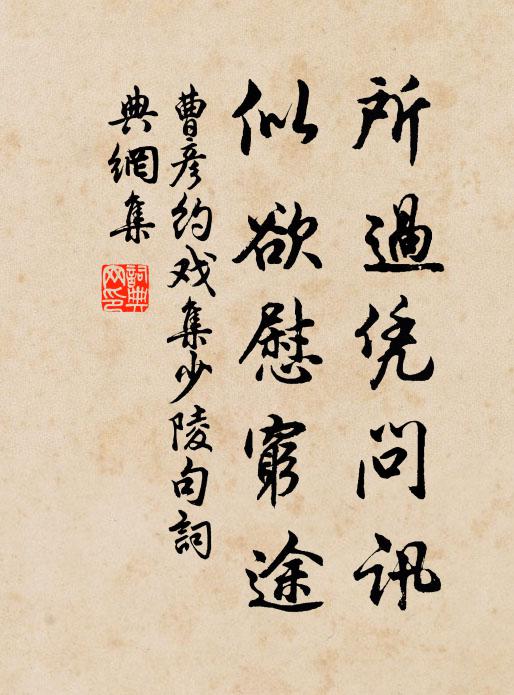 所過凭問訊
似欲慰窮途
曹彦約戏集少陵句詞
典網集
詞典网印